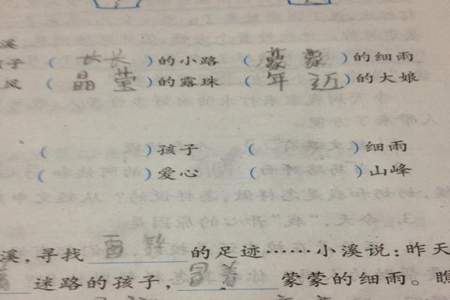 溪
子 ( 长长 )的小路 ( 蒙蒙 )的细雨
风 ( 晶莹 )的露珠 ( 年近 )的大娘
( )孩子 ( )细雨
( )爱心 ( )山峰
溪,寻找 雷锋 的足迹……小溪说:昨天
迷路的孩子, 冒着 蒙蒙的细雨。瞧